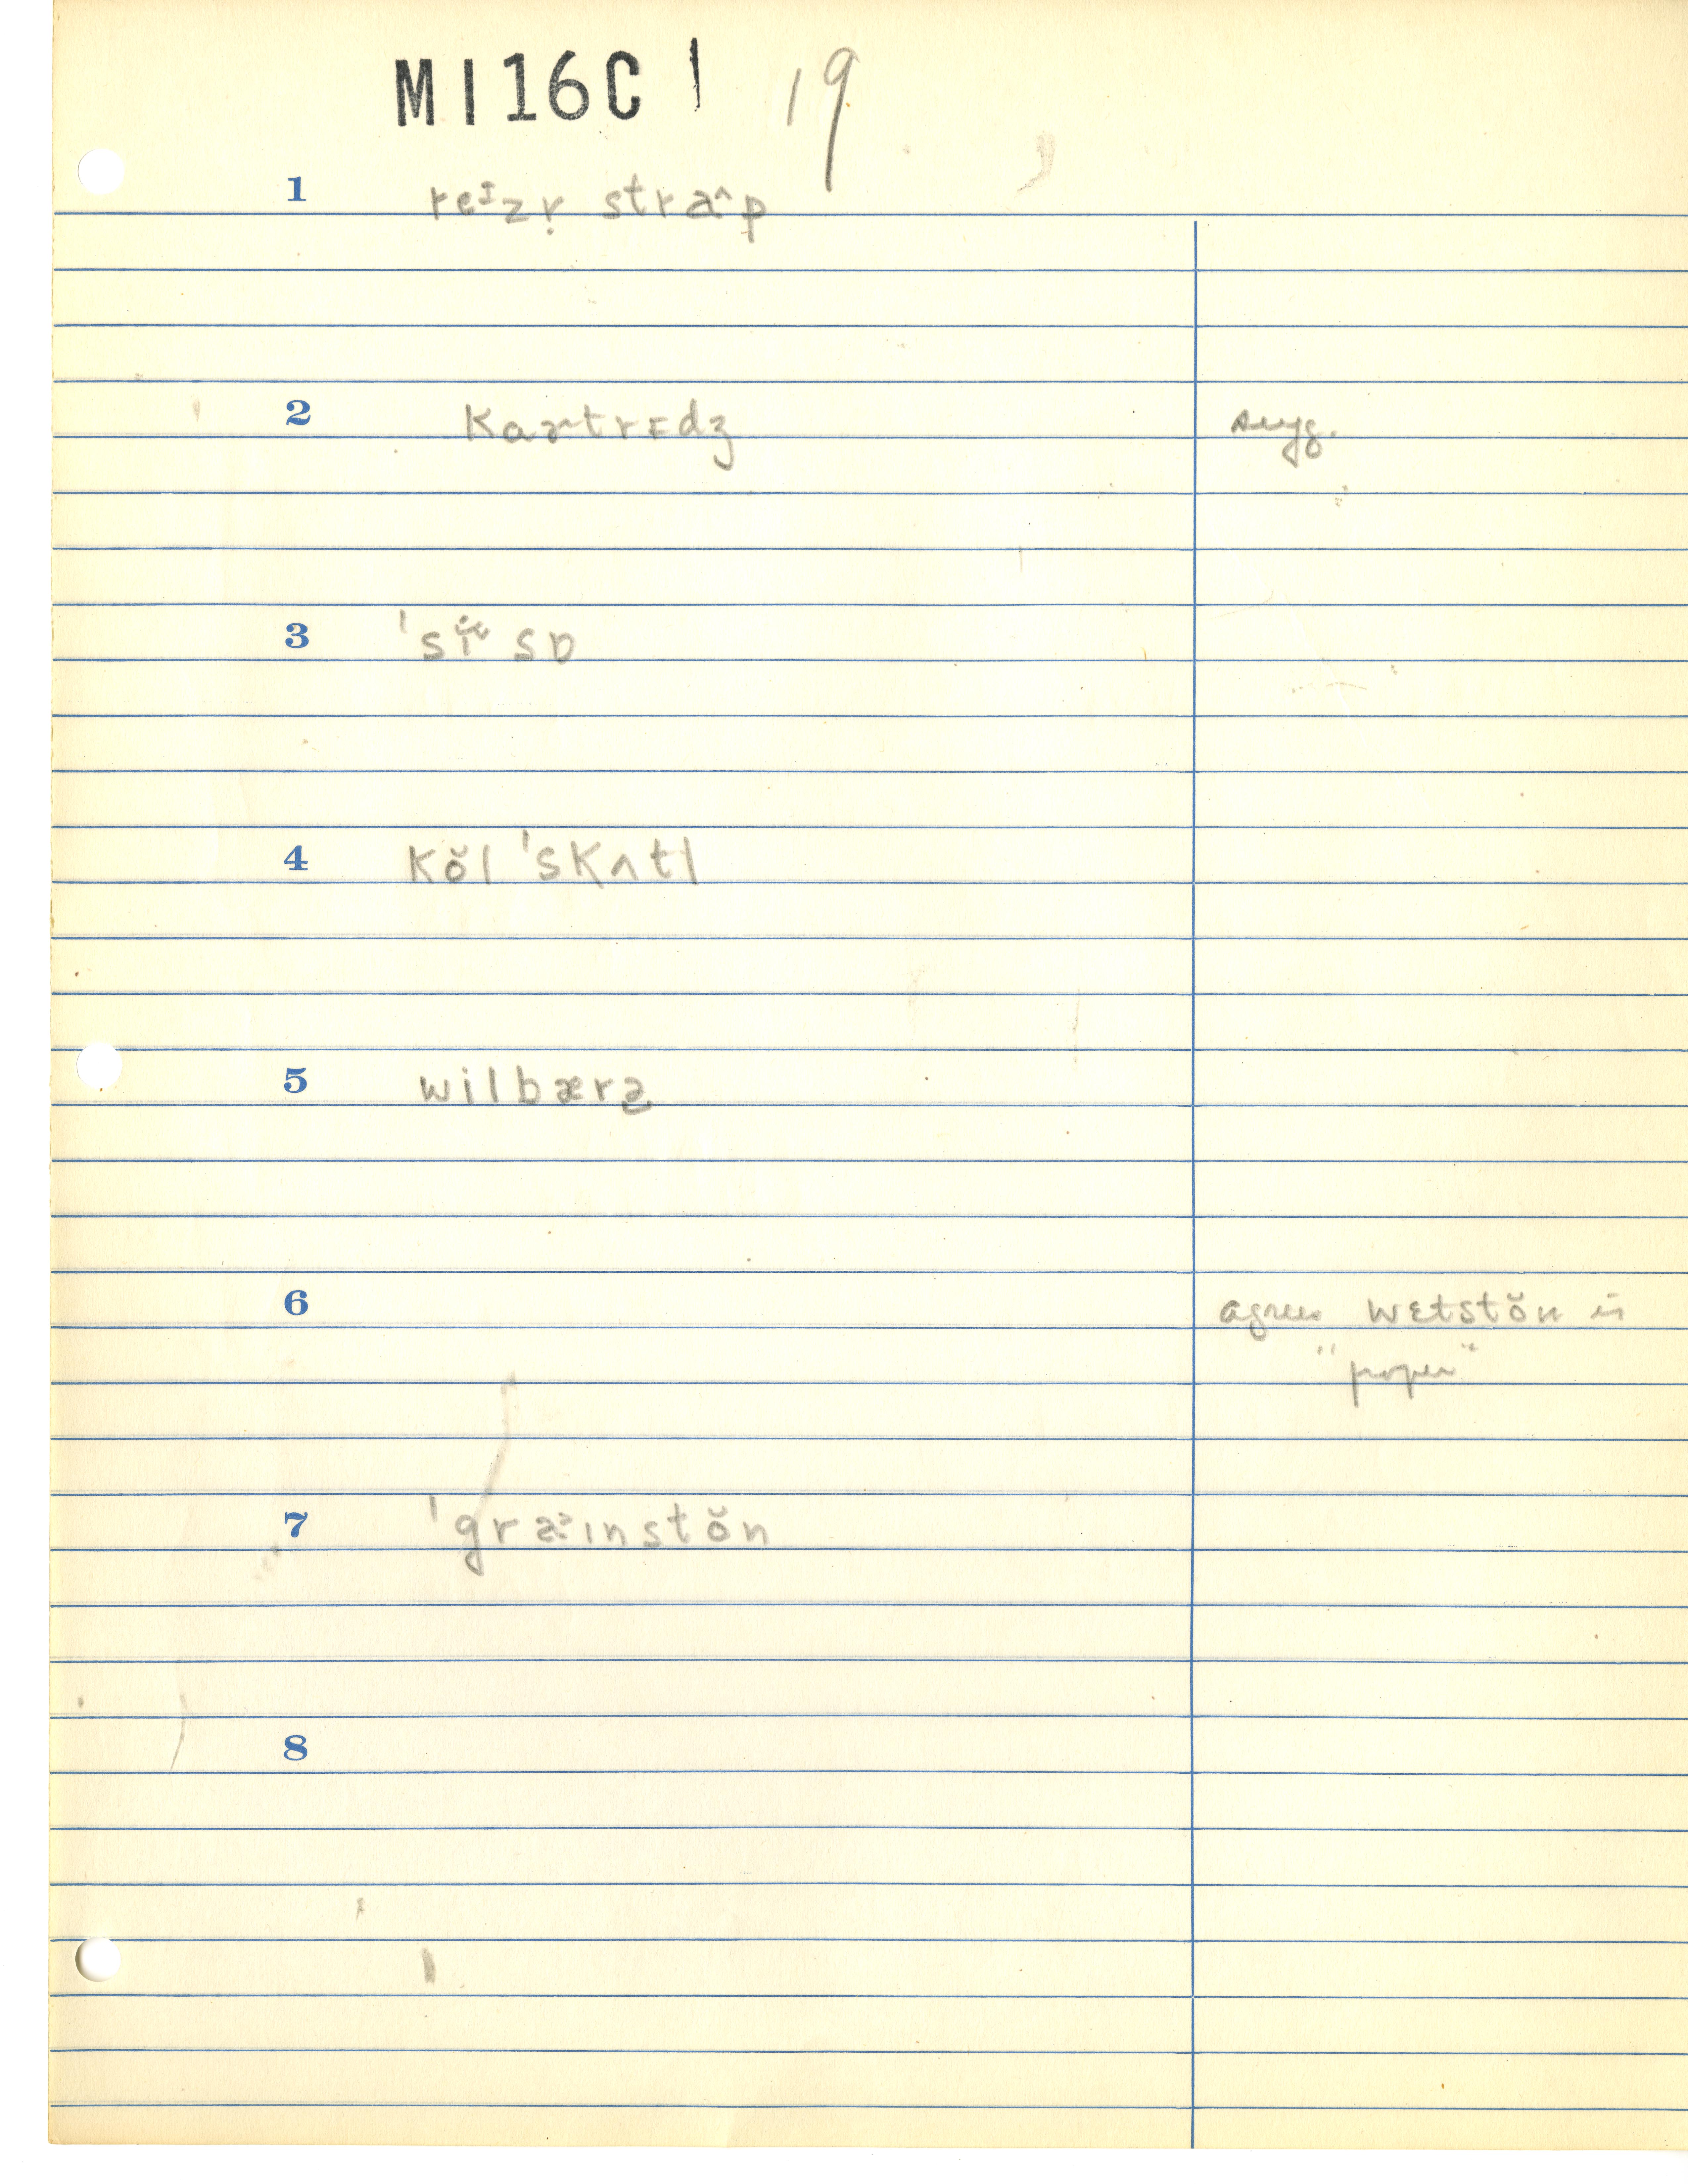 MI16C1 19
1 reɪzṛ strɑ^p
2 Kaɚtrɪdʒ sugg.
3 'sɒ
4 Kŏl 'sKʌtl
5 wilbærə
6 agrees wɛtstŏn is
"proper"
7 'graɪnstŏn
8